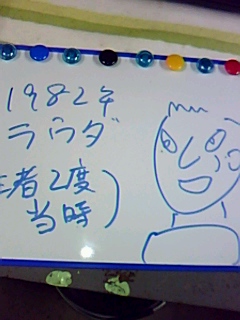 1982年
ラウダ
者2度
当時)